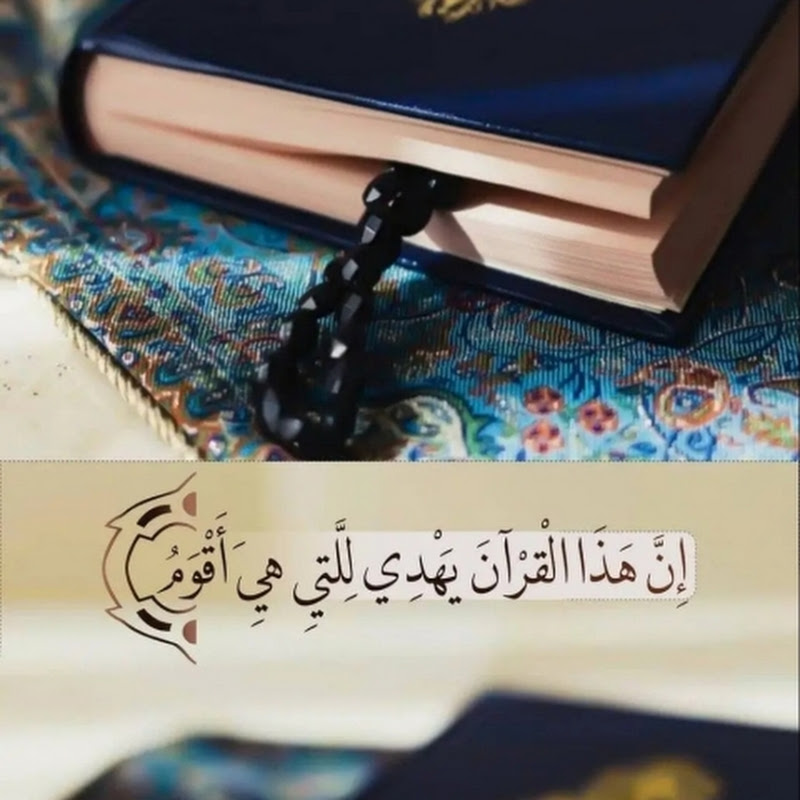 إِنَّ هَذَا الْقرْآنَ يَهْدِي لِلَّتِي هِيَ أَقْوَمُ